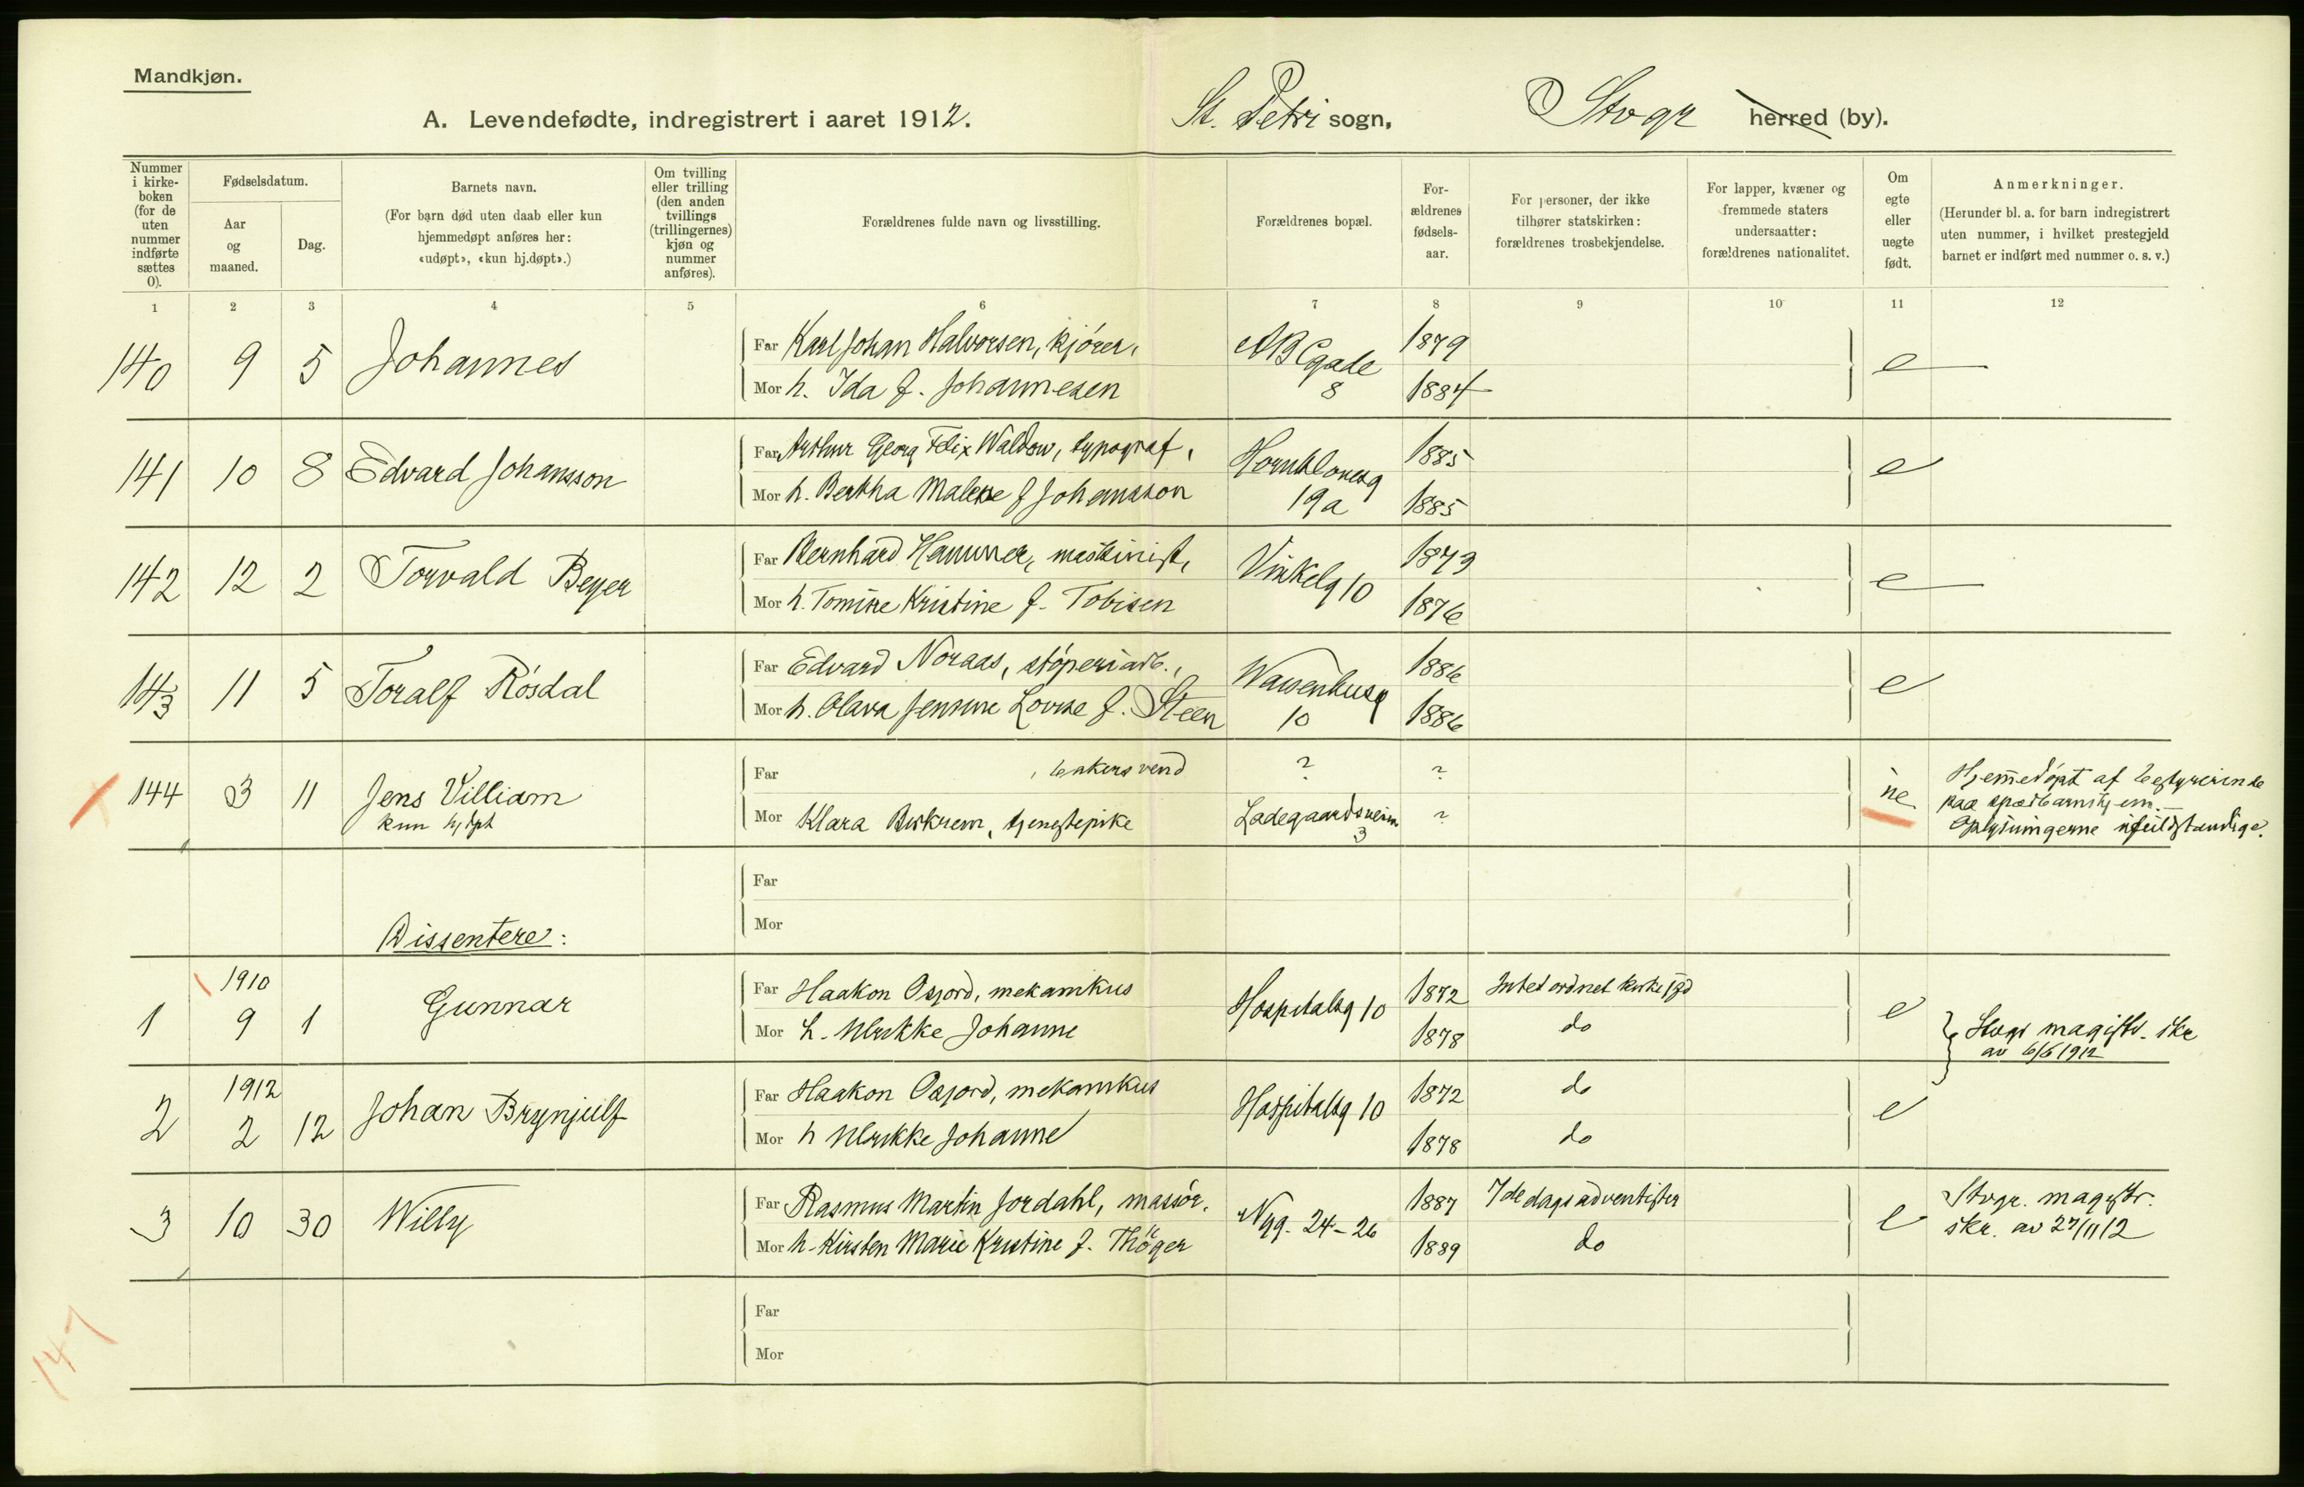 Mandkjøn.
A. Levendefødte, indregistrert i aaret 1912. St. Petri sogn, Stvgr herred (by).
Nummer i kirke-boken (for de uten nummer indførte sættes 0).
Fødselsdatum.
Aar og maaned.
Dag.
Barnets navn.
(For barn død uten daab eller kun hjemmedøpt anføres her: «udøpt», «kun hj.døpt».)
Om tvilling eller trilling (den anden tvillings (trillingernes) kjøn og nummer anføres).
Forældrenes fulde navn og livsstilling.
Forældrenes bopæl.
For-ældrenes fødsels-aar.
For personer, der ikke tilhører statskirken: forældrenes trosbekjendelse.
For lapper, kvæner og fremmede staters undersaatter: forældrenes nationalitet.
Om egte eller uegte født.
Anmerkninger.
(Herunder bl. a. for barn indregistrert uten nummer, i hvilket prestegjeld barnet er indført med nummer o. s. v.)
1 2 3 4 5 6 7 8 9 10 11 12
140 9 5 Johannes Far Karl Johan Halvorsen, kjører, ABCgade 8 1879 e
Mor h. Ida f. Johannesen 1884
141 10 8 Edvard Johansson Far Arthur Georg Felix Waldow, typograf, 19a 1885 e
Mor h. Bertha Malene f Johansson 1885
142 12 2 Torvald Beyer Far Bernhard Hammer, maskinist, Vinkelg 10 1873 e
Mor h. Tomine Kristine f. Tobisen 1876
143 11 5 Toralf Rösdal Far Edvard Noraas, støperiarb., Waisenhusg 10 1886 e
Mor h. Olava Jensine Lovise f. Steen 1886
144 3 11 Jens Villiam Far , bakersvend ? ? ue Hjemedöpt af bestyrerinde
kun hjdpt Mor Klara Birkrem, tjenestepike Ladegaardsveien 3 ? paa spædbarnshjem.
Oplysningerne ufuldstændige.
Far
Mor
Dissentere:
1 1910 9 1 Gunnar Far Haakon Osjord, mekanikus Hospitalsg 10 1872 Intet ordnet kirkesfd e
Mor h. Ulrikke Johanne 1878 do Stvgr magistr. skr
av 6/6 1912
2 1912 2 12 Johan Brynjulf Far Haakon Osjord, mekanikus Hospitalsg 10 1872 do e
Mor h Ulrikke Johanne 1878 do
3 10 30 Willy Far Rasmus Martin Jordahl, massør. Nyg. 24-26 1887 7de dags adventister e Stvgr. magistr.
Mor h. Kirsten Marie Kristine f. Thöger 1889 do skr. av 27/11 12
147
Far
Mor